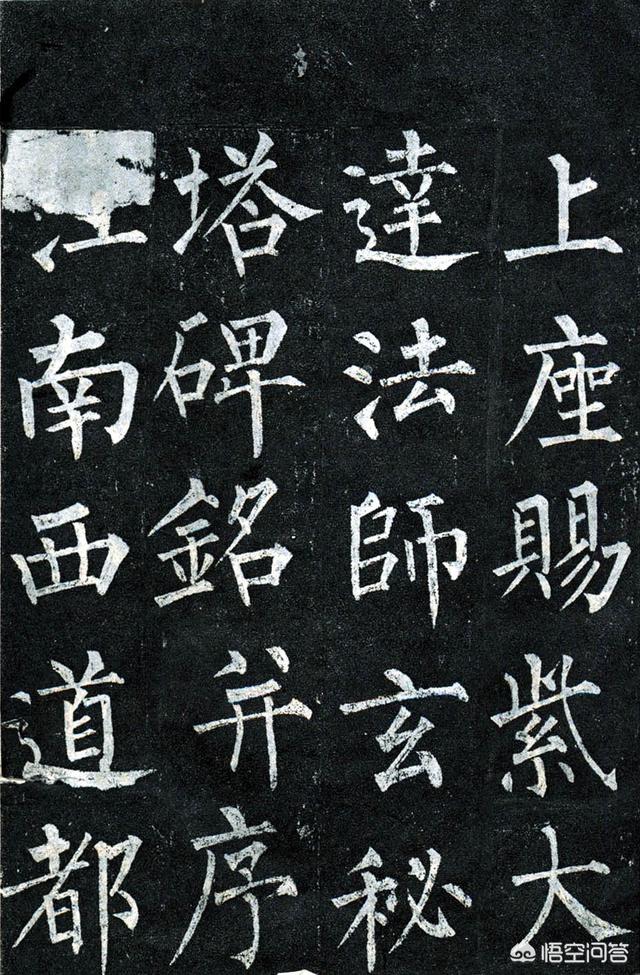 上座賜紫大
達法師玄秘
塔碑銘并序
江南西道都
悟空问答